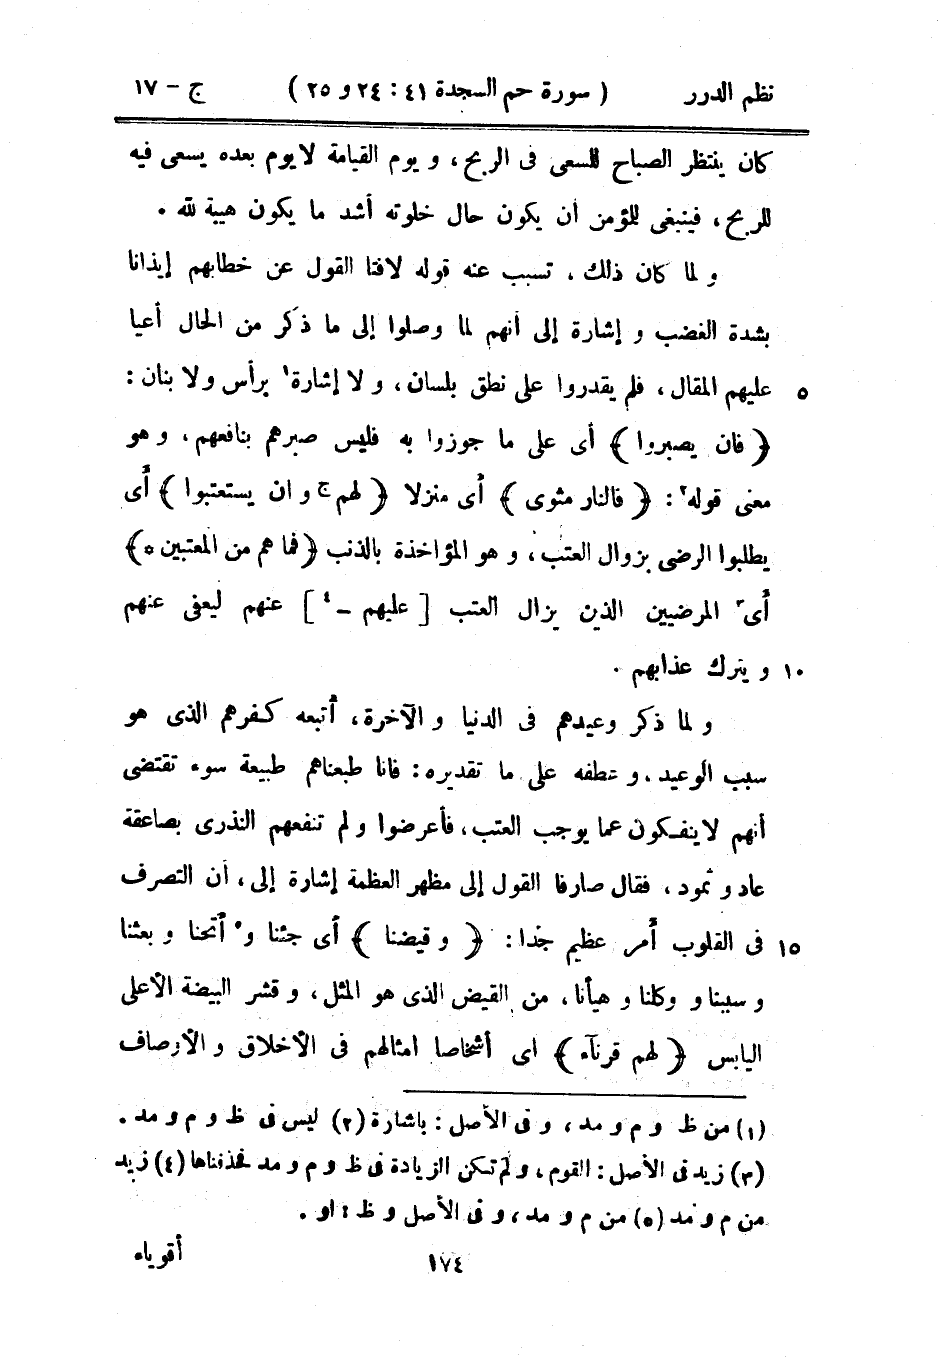 نظم الدرر ( سورة حم السجدة ٤١ : ٢٤ و ٢٥ ) ج - ١٧
كان ينتظر الصباح للسعى فى الربح، و يوم القيامة لا يوم بعده يسعى فيه
للربح، فينبغى للمؤمن أن يكون حال خلوته أشد ما يكون هيبة لله .
و لما كان ذلك، تسبب عنه قوله لافتا القول عن خطابهم إيذانا
بشدة الغضب و إشارة إلى أنهم لما وصلوا إلى ما ذكر من الحال أعيا
٥ عليهم المقال، فلم يقدروا على نطق بلسان، و لا إشارة١ برأس ولا بنان :
﴿ فان يصبروا ﴾ أى على ما جوزوا به فليس صبرهم بنافعهم، و هو
معنى قوله٢ : ﴿ فالنار مثوى ﴾ أى منزلا ﴿ لهم ج و ان يستعتبوا ﴾ أى
يطلبوا الرضى بزوال العتب، و هو المؤاخذة بالذنب ﴿ فما هم من المعتبين ٥ ﴾
أى٣ المرضيين الذين يزال العتب [ عليهم - ٤ ] عنهم ليعفى عنهم
١٠ و يترك عذابهم .
و لما ذكر وعيدهم فى الدنيا و الآخرة، أتبعه كفرهم الذى هو
سبب الوعيد، و عطفه على ما تقديره : فانا طبعناهم طبيعة سوء تقتضى
أنهم لا ينفكون عما يوجب العتب، فأعرضوا و لم تنفعهم النذرى بصاعقة
عاد و ثمود، فقال صارفا القول إلى مظهر العظمة إشارة إلى، أن التصرف
١٥ فى القلوب أمر عظيم جدا : ﴿ و قيضنا ﴾ أى جئنا و٥ أتحنا و بعثنا
و سببنا و وكلنا و هيأنا، من القيض الذى هو المثل، و قشر البيضة الأعلى
اليابس ﴿ لهم قرنآء ﴾ اى أشخاصا امثالهم فى الأخلاق و الأرصاف
(١) من ظ و م و مد، و فى الأصل : باشارة (٢) ليس فى ظ و م و مد .
(٣) زيد فى الأصل : القوم، و لم تكن الزيادة فى ظ و م و مد فحذفناها (٤) زيد
من م و مد (٥) من م و مد، و فى الأصل و ظ : او .
أقوياء
١٧٤